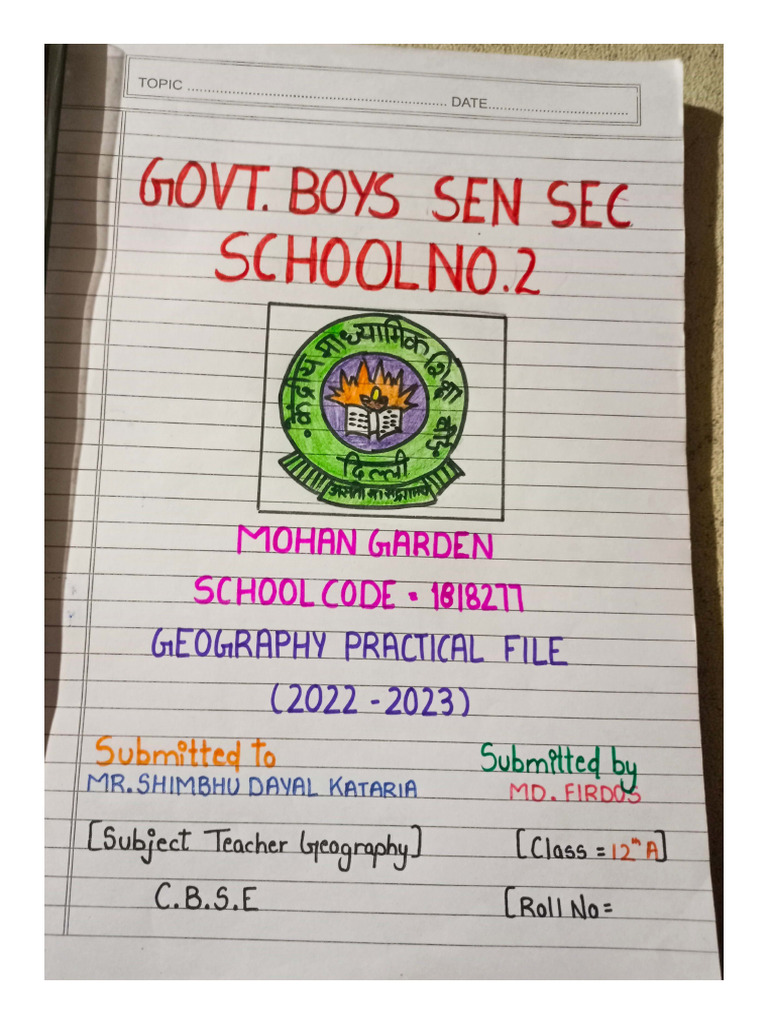 TOPIC ........................................ DATE........................
GOVT. BOYS SEN SEC
SCHOOL NO.2
केंद्रीय माध्यामिक शिक्षा बोर्ड
दिल्ली
असतो मा सद्गमय
MOHAN GARDEN
SCHOOL CODE - 1818277
GEOGRAPHY PRACTICAL FILE
(2022-2023)
Submitted to
MR. SHIMBHU DAYAL KATARIA
[Subject Teacher Geography]
C.B.S.E
Submitted by
MD. FIRDOS
[Class = 12th A]
[Roll No=